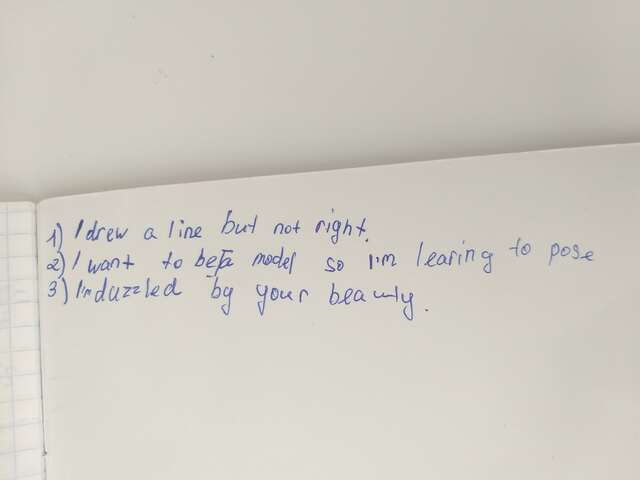 1) I drew a line but not right.
2) I want to be a model so I'm learing to pose
3) I'm duzzled by your beauty.